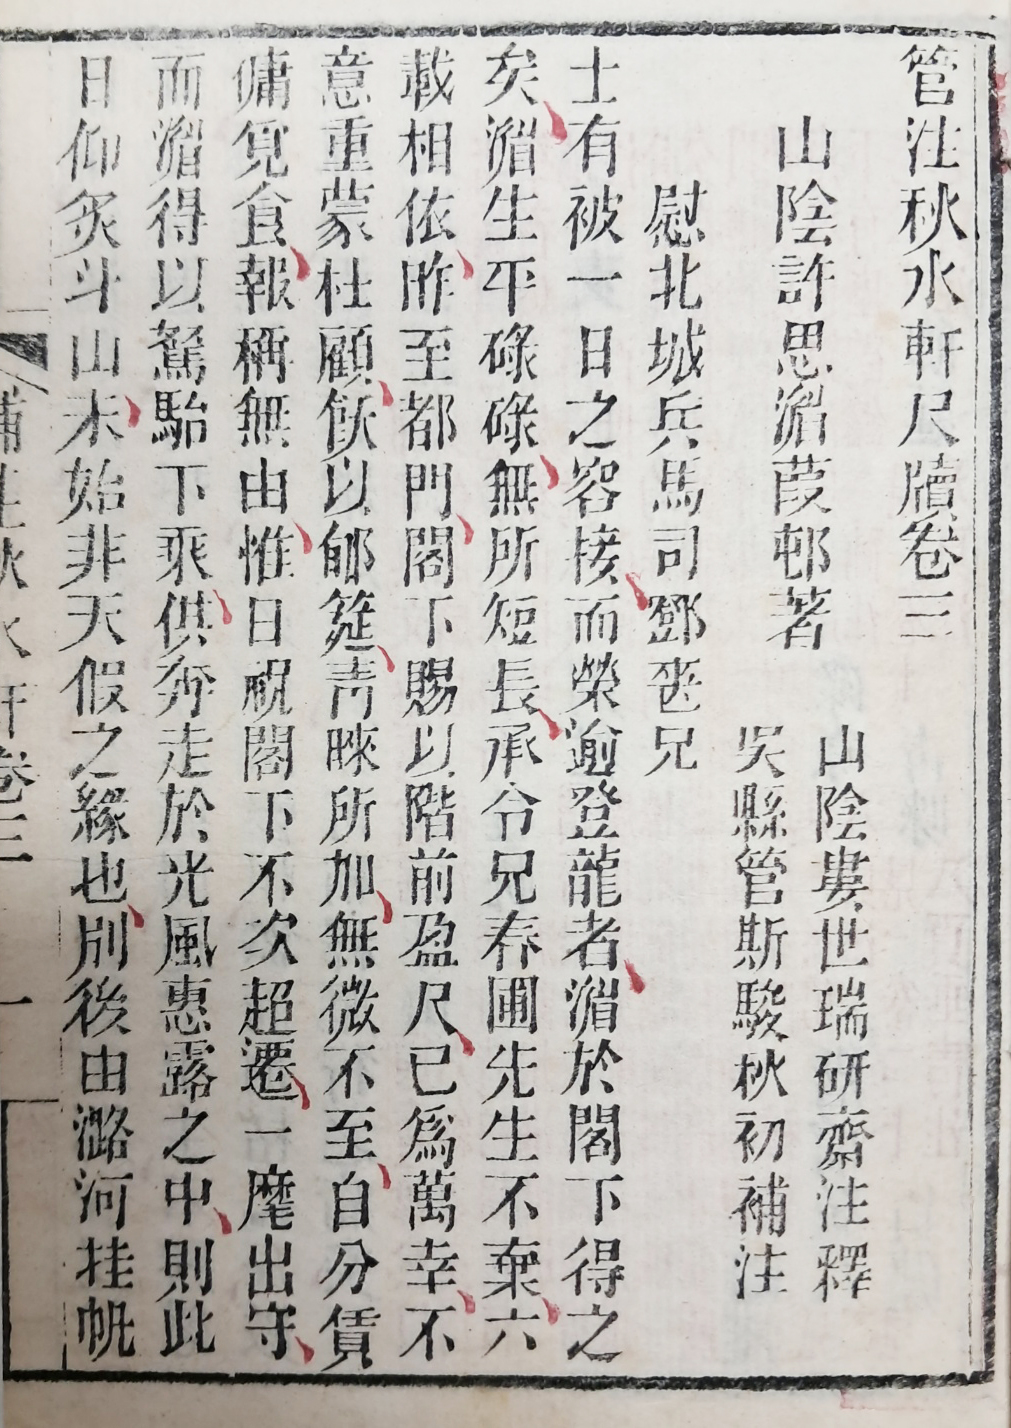 管注秋水軒尺牘卷三
山陰許思湄葭邨著
山陰婁世瑞研齋注釋
吳縣管斯駿秋初補注
慰北城兵馬司鄧丧兄
士有被一日之容接而榮逾登龍者湄於閣下得之
矣湄生平碌碌無所短長承令兄春圃先生不棄六
載相依昨至都門閣下賜以階前盈尺已爲萬幸不
意重蒙杜顧飫以郇筵靑睞所加無微不至自分賃
傭覓食報稱無由惟日祝閣下不次超遷一麾出守
而湄得以駑駘下乘供奔走於光風惠露之中則此
日仰炙斗山未始非天假之緣也別後由潞河挂帆
補注秋水軒卷三
一